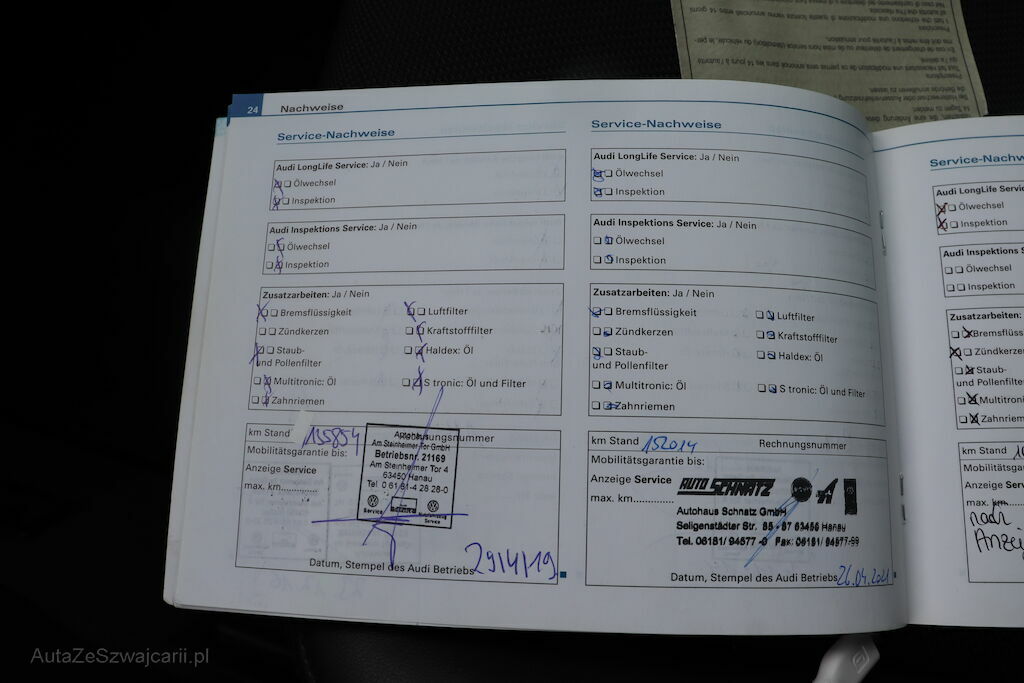 24 Nachweise
Service-Nachweise
Audi LongLife Service: Ja / Nein
Ölwechsel
Inspektion
Audi Inspektions Service: Ja / Nein
Ölwechsel
Inspektion
Zusatzarbeiten: Ja / Nein
Bremsflüssigkeit
Luftfilter
Zündkerzen
Kraftstofffilter
Staub-
und Pollenfilter
Haldex: Öl
Multitronic: Öl
S tronic: Öl und Filter
Zahnriemen
km Stand 135854
Rechnungsnummer
Mobilitätsgarantie bis:
Anzeige Service
max. km..............
Am Steinheimer Tor GmbH
Betriebsnr. 21169
Am Steinheimer Tor 4
63450 Hanau
Tel. 0 61 81-4 28 28-0
Service
Service
Datum, Stempel des Audi Betriebs 29/4/19
Service-Nachweise
Audi LongLife Service: Ja / Nein
Ölwechsel
Inspektion
Audi Inspektions Service: Ja / Nein
Ölwechsel
Inspektion
Zusatzarbeiten: Ja / Nein
Bremsflüssigkeit
Luftfilter
Zündkerzen
Kraftstofffilter
Staub-
und Pollenfilter
Haldex: Öl
Multitronic: Öl
S tronic: Öl und Filter
Zahnriemen
km Stand 152014
Rechnungsnummer
Mobilitätsgarantie bis:
Anzeige Service
max. km..............
AUTO SCHNATZ
Autohaus Schnatz GmbH
Seligenstädter Str. 85 - 87 63456 Hanau
Tel. 06181/ 94577 -0 Fax: 06181/ 94577-99
Datum, Stempel des Audi Betriebs 26.04.2021
Service-Nachw
Audi LongLife Servic
Ölwechsel
Inspektion
Audi Inspektions S
Ölwechsel
Inspektion
Zusatzarbeiten:
Bremsflüss
Zündkerze
Staub-
und Pollenfil
Multitroni
Zahnriem
km Stand
Mobilitätsga
Anzeige Serv
max. km.......
nach
Anzei
AutaZeSzwajcarii.pl